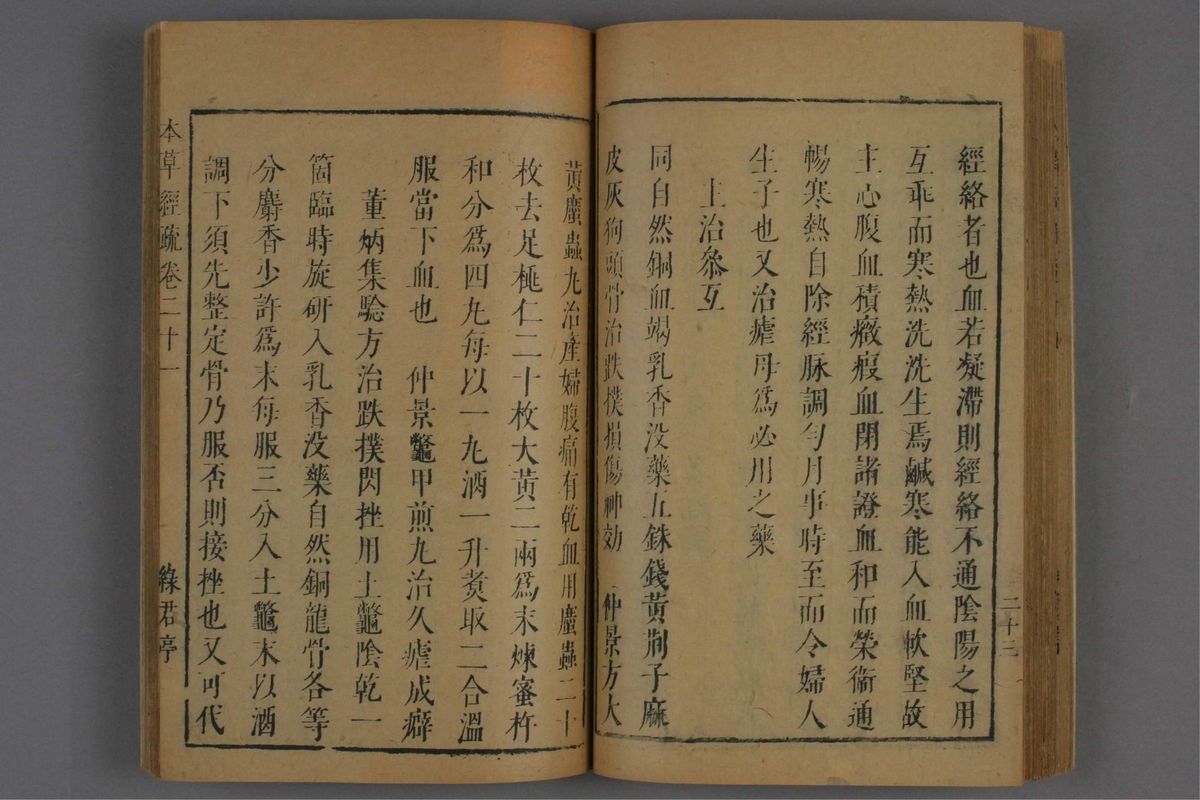 經絡者也血若凝滯則經絡不通陰陽之用
互乖而寒熱洗洗生焉鹹寒能入血軟堅故
主心腹血積癥瘕血閉諸證血和而榮衞通
暢寒熱自除經脉調勻月事時至而令婦人
生子也又治瘧母爲必用之藥
主治叅互
同自然銅血竭乳香没藥五銖錢黃荆子麻
皮灰狗頭骨治跌撲損傷神効 仲景方大
二十三
黃䗪蟲丸治產婦腹痛有乾血用䗪蟲二十
枚去足桃仁二十枚大黃二兩爲末煉蜜杵
和分爲四丸每以一丸酒一升煑取二合溫
服當下血也 仲景鱉甲煎丸治久瘧成癖
董炳集驗方治跌撲閃挫用土鱉陰乾一
箇臨時旋研入乳香没藥自然銅龍骨各等
分麝香少許爲末每服三分入土鱉末以酒
調下須先整定骨乃服否則接挫也又可代
本草經疏卷二十一
綠君亭